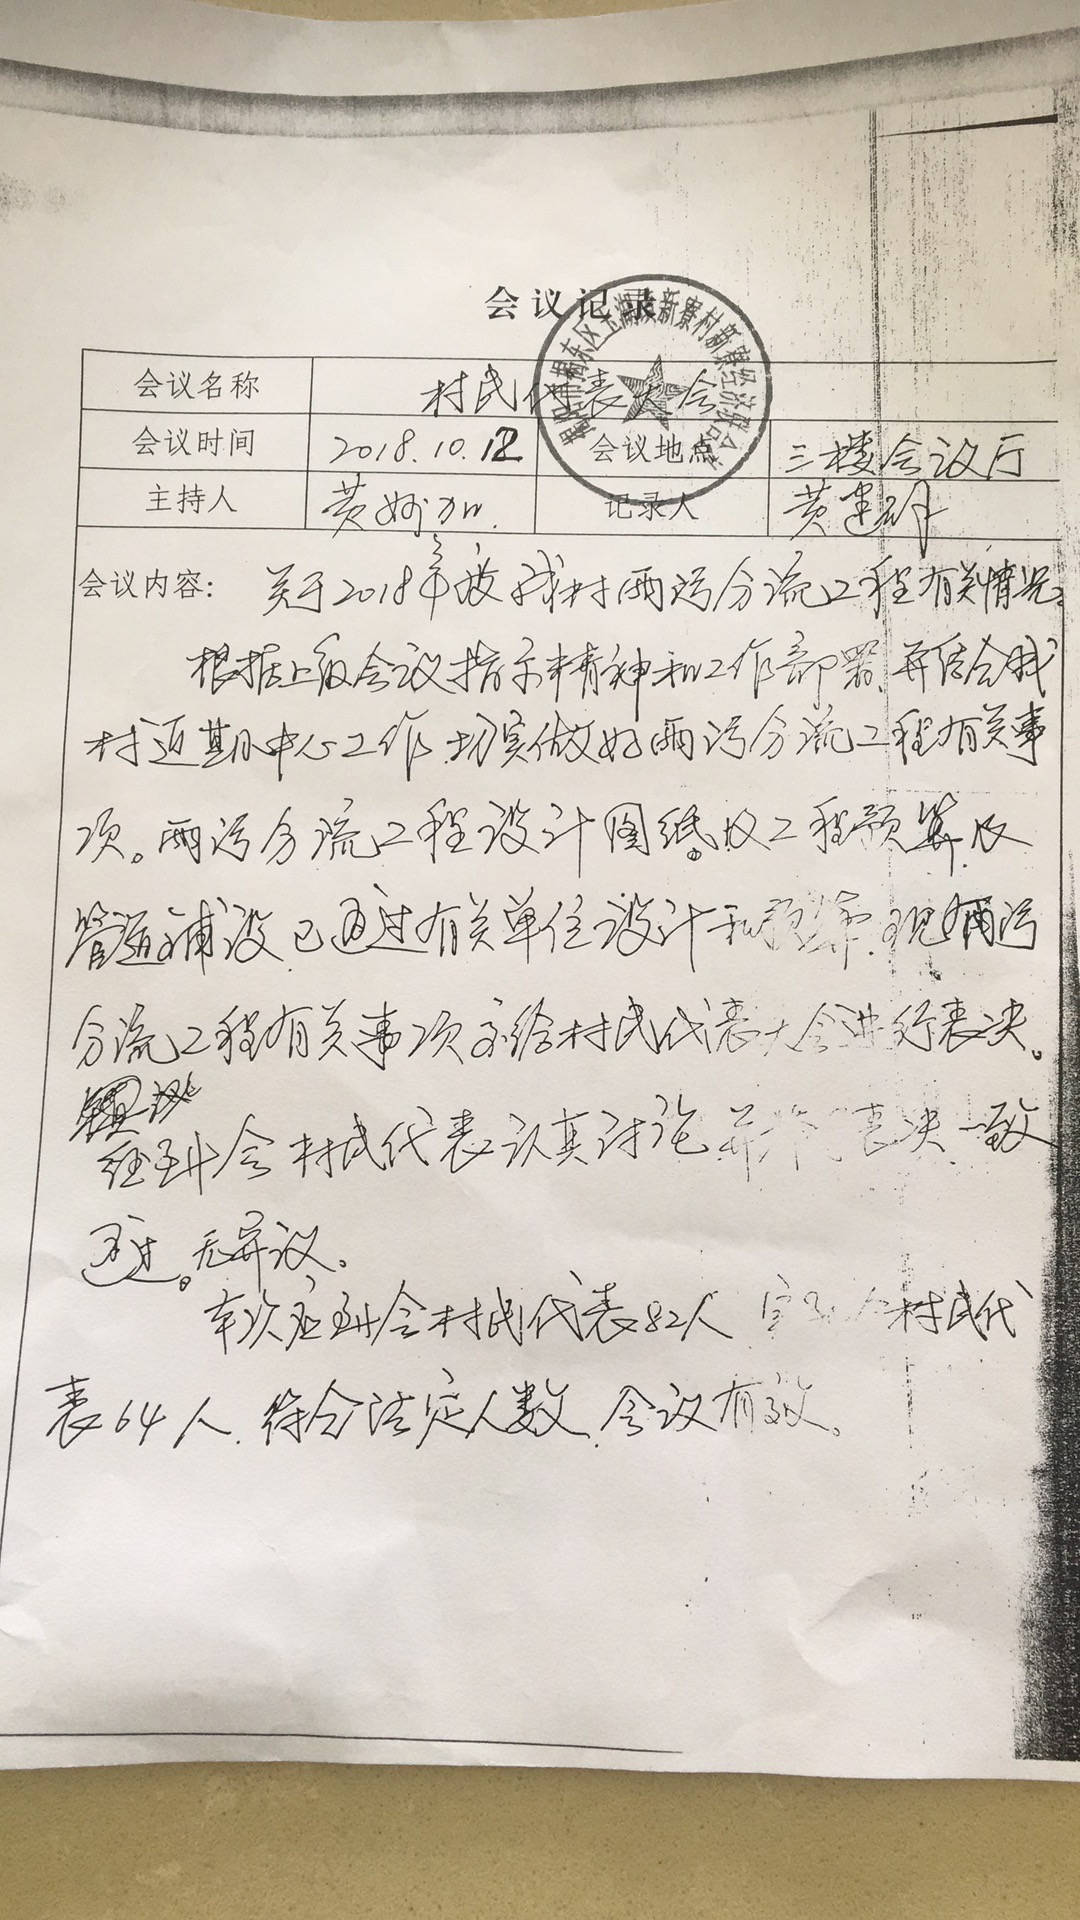 会议记录
会议名称 村民代表大会
会议时间 2018.10.12 会议地点 三楼会议厅
主持人 黄 记录人 黄建
会议内容: 关于2018年度我村雨污分流工程有关情况。
根据上级会议指示精神和工作部署,并结合我
村近期中心工作,切实做好雨污分流工程有关事
项。雨污分流工程设计图纸及工程预算及
管道铺设已通过有关单位设计和预算,现雨污
分流工程有关事项交给村民代表大会进行表决。
经到会村民代表认真讨论并 表决一致
通过。无异议。
本次应到会村民代表82人 实 村民代
表64人,符合法定人数,会议有效。